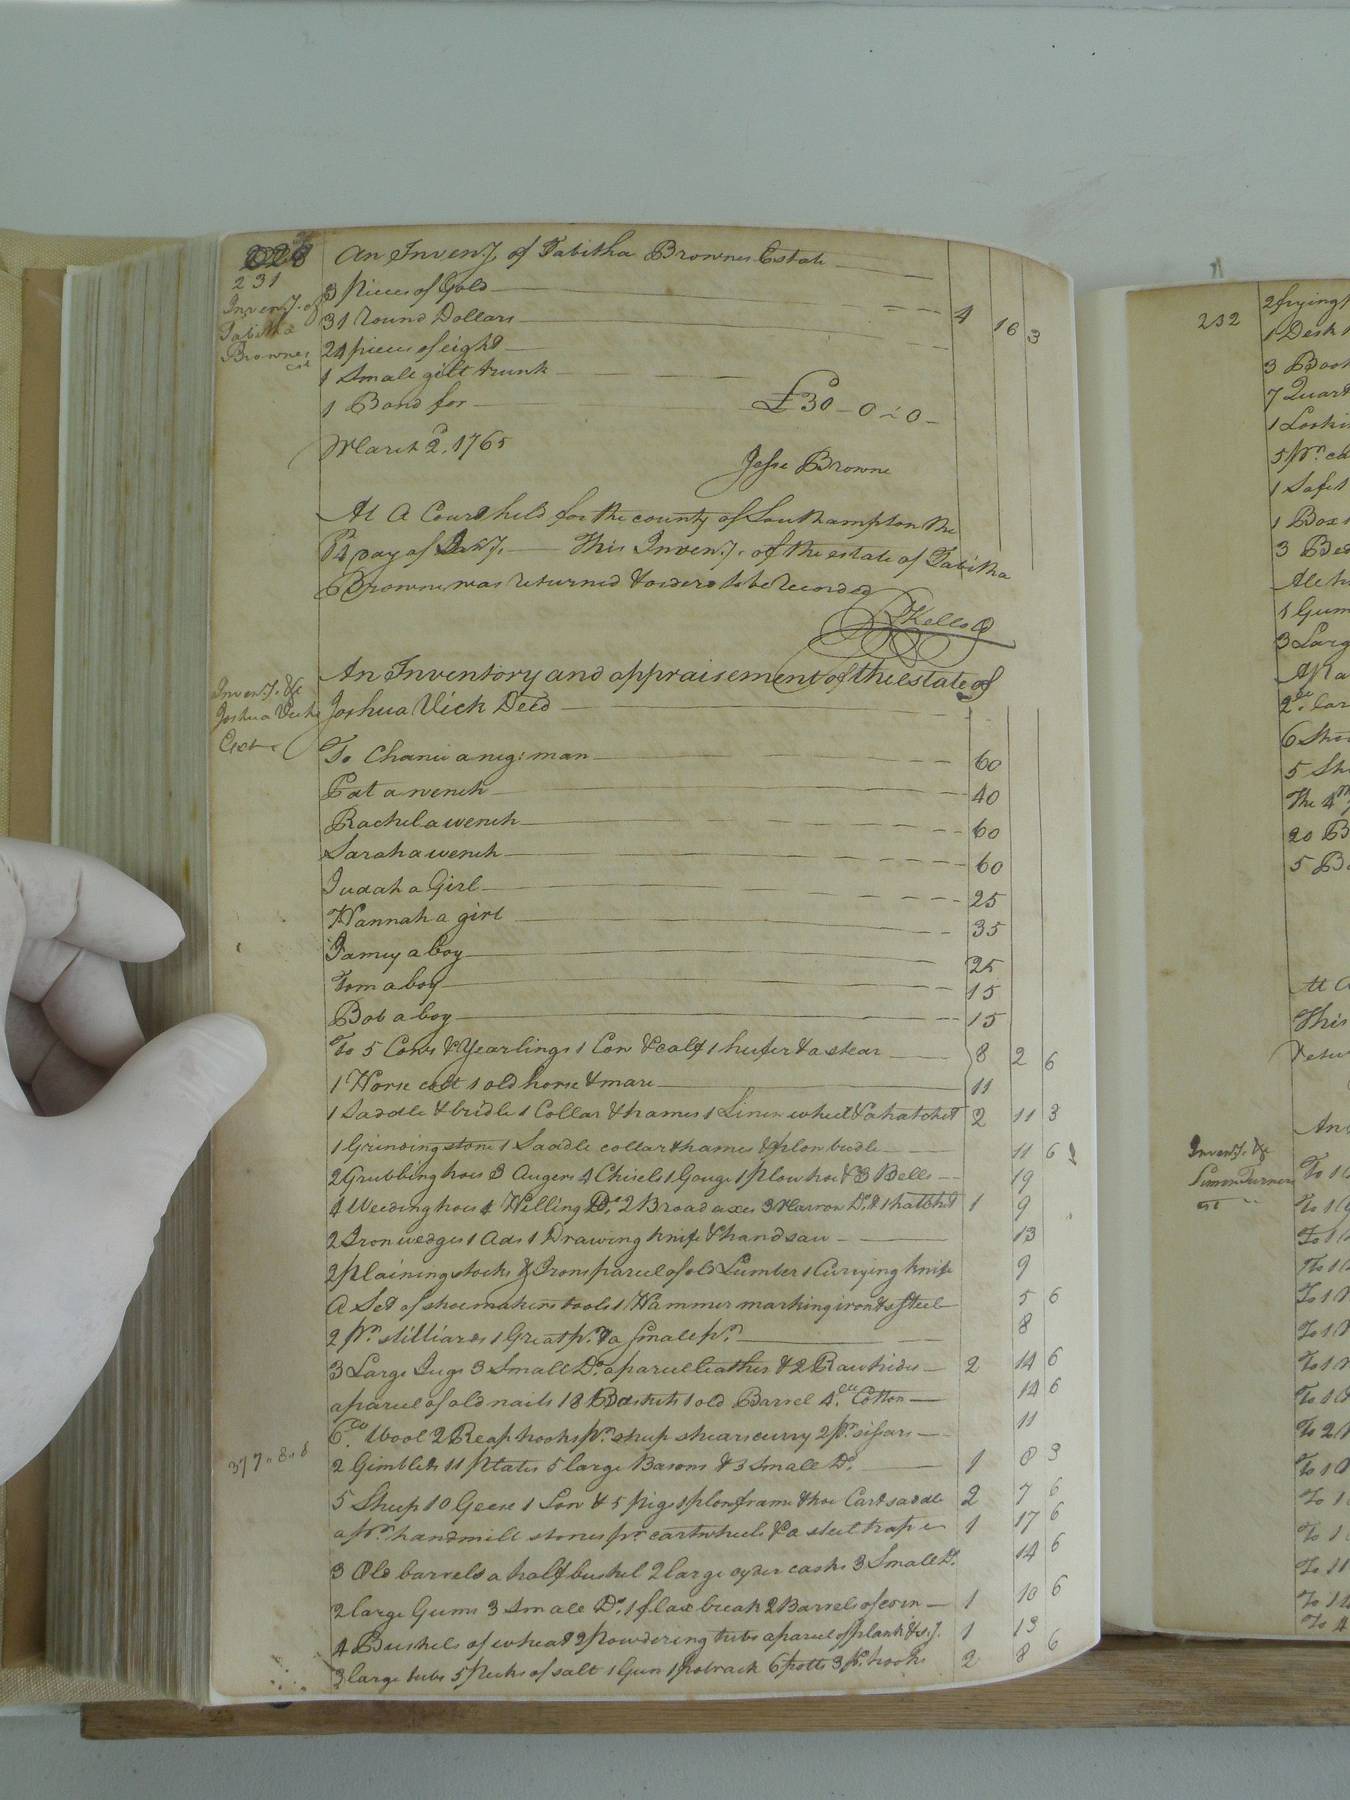 228
231
Inven.y. of
Tabitha
Brownes
est
An Inven.y. of Tabitha Brownes Estate
3 pieces of Gold
31 Round Dollars 4 16 3
24 pieces of eight
1 Small gilt trunk
1 Bond for £30-0-0-
March 2.d 1765
Jesse Browne
At A Court held for the county of Southampton the
14 day of This Inven.y. of the estate of Tabitha
Browne was returned & orderd to be Recorded
RKello
Inven.y. &c
Joshua Vicks
Est
An Inventory and appraisement of the estate of
Joshua Vick Decd
To Chance a neg: man 60
Pat a wench 40
Rachel a wench 60
Sarah a wench 60
Judah a Girl 25
Hannah a girl 35
Jamey a boy 25
Tom a boy 15
Bob a boy 15
To 5 Cows & Yearlings 1 Cow & calf 1 heifer & a stear 8 2 6
1 Horse colt 1 old horse & mare 11
1 Saddle & bridle 1 Collar & hames 1 Linen wheel & a hatchet 2 11 3
1 Grinding stone 1 Saddle collar & hames & plow bridle 11 6
2 Grubbing hoes 3 Augers 4 Chisels 1 Gouge 1 plow hoe & 3 Bells 19
4 Weeding hoes 4 Hilling Do. 2 Broad axes 3 Narrow Do. & 1 hatchet 1 9
2 Iron wedges 1 Ads 1 Drawing knife & handsaw 13
2 plaining stocks & Irons parcel of old Lumber 1 Currying knife 9
A Set of shoemakers tools 1 Hammer marking iron & steel 5 6
2 pr. stilliards 1 Great pr. & a Small pr. 8
3 Large Jugs 3 Small Do. a parcel leather & 2 Raw hides 2 14 6
a parcel of old nails 18 Baskets 1 old Barrel 4 Cotton 14 6
6 Wool 2 Reap hooks pr. sheep shears curry 2 pr. sissars 11
377.8.8
2 Gimblets 11 plates 5 large Basons & 3 Small Do. 1 8 3
5 Sheep 10 Geese 1 Sow & 5 pigs 1 plow frame & hoe Cart saddle 2 7 6
a pr. handmill stones pr. cartwheels & a steel trap 1 17 6
3 Old barrels a half bushel 2 large cyder casks 3 Small Do. 14 6
2 large Gums 3 Small Do. 1 flax break 2 Barrels of corn 1 10 6
4 Bushels of wheat 2 powdering tubs a parcel of plank &c.y. 1 13
3 large tubs 5 pecks of salt 1 Gun 1 potrack 6 potts 3 pr. hooks 2 8 6
232
2 frying
1 Desk
3 Boo
7 Quart
1 Looki
5 pr.
1 Safe
1 Box
3 Bed
1 Gum
3 Larg
2
6
5 Sh
The 4th
20 B
5 B
At A
This
retur
An
Inven.y. &c
Simon Turners
est
To 1
To 1
To 1
To 1
To 1
To 1
To 1
To 1
To 2
To 1
To 1
To 1
To 11
To 1
To 4